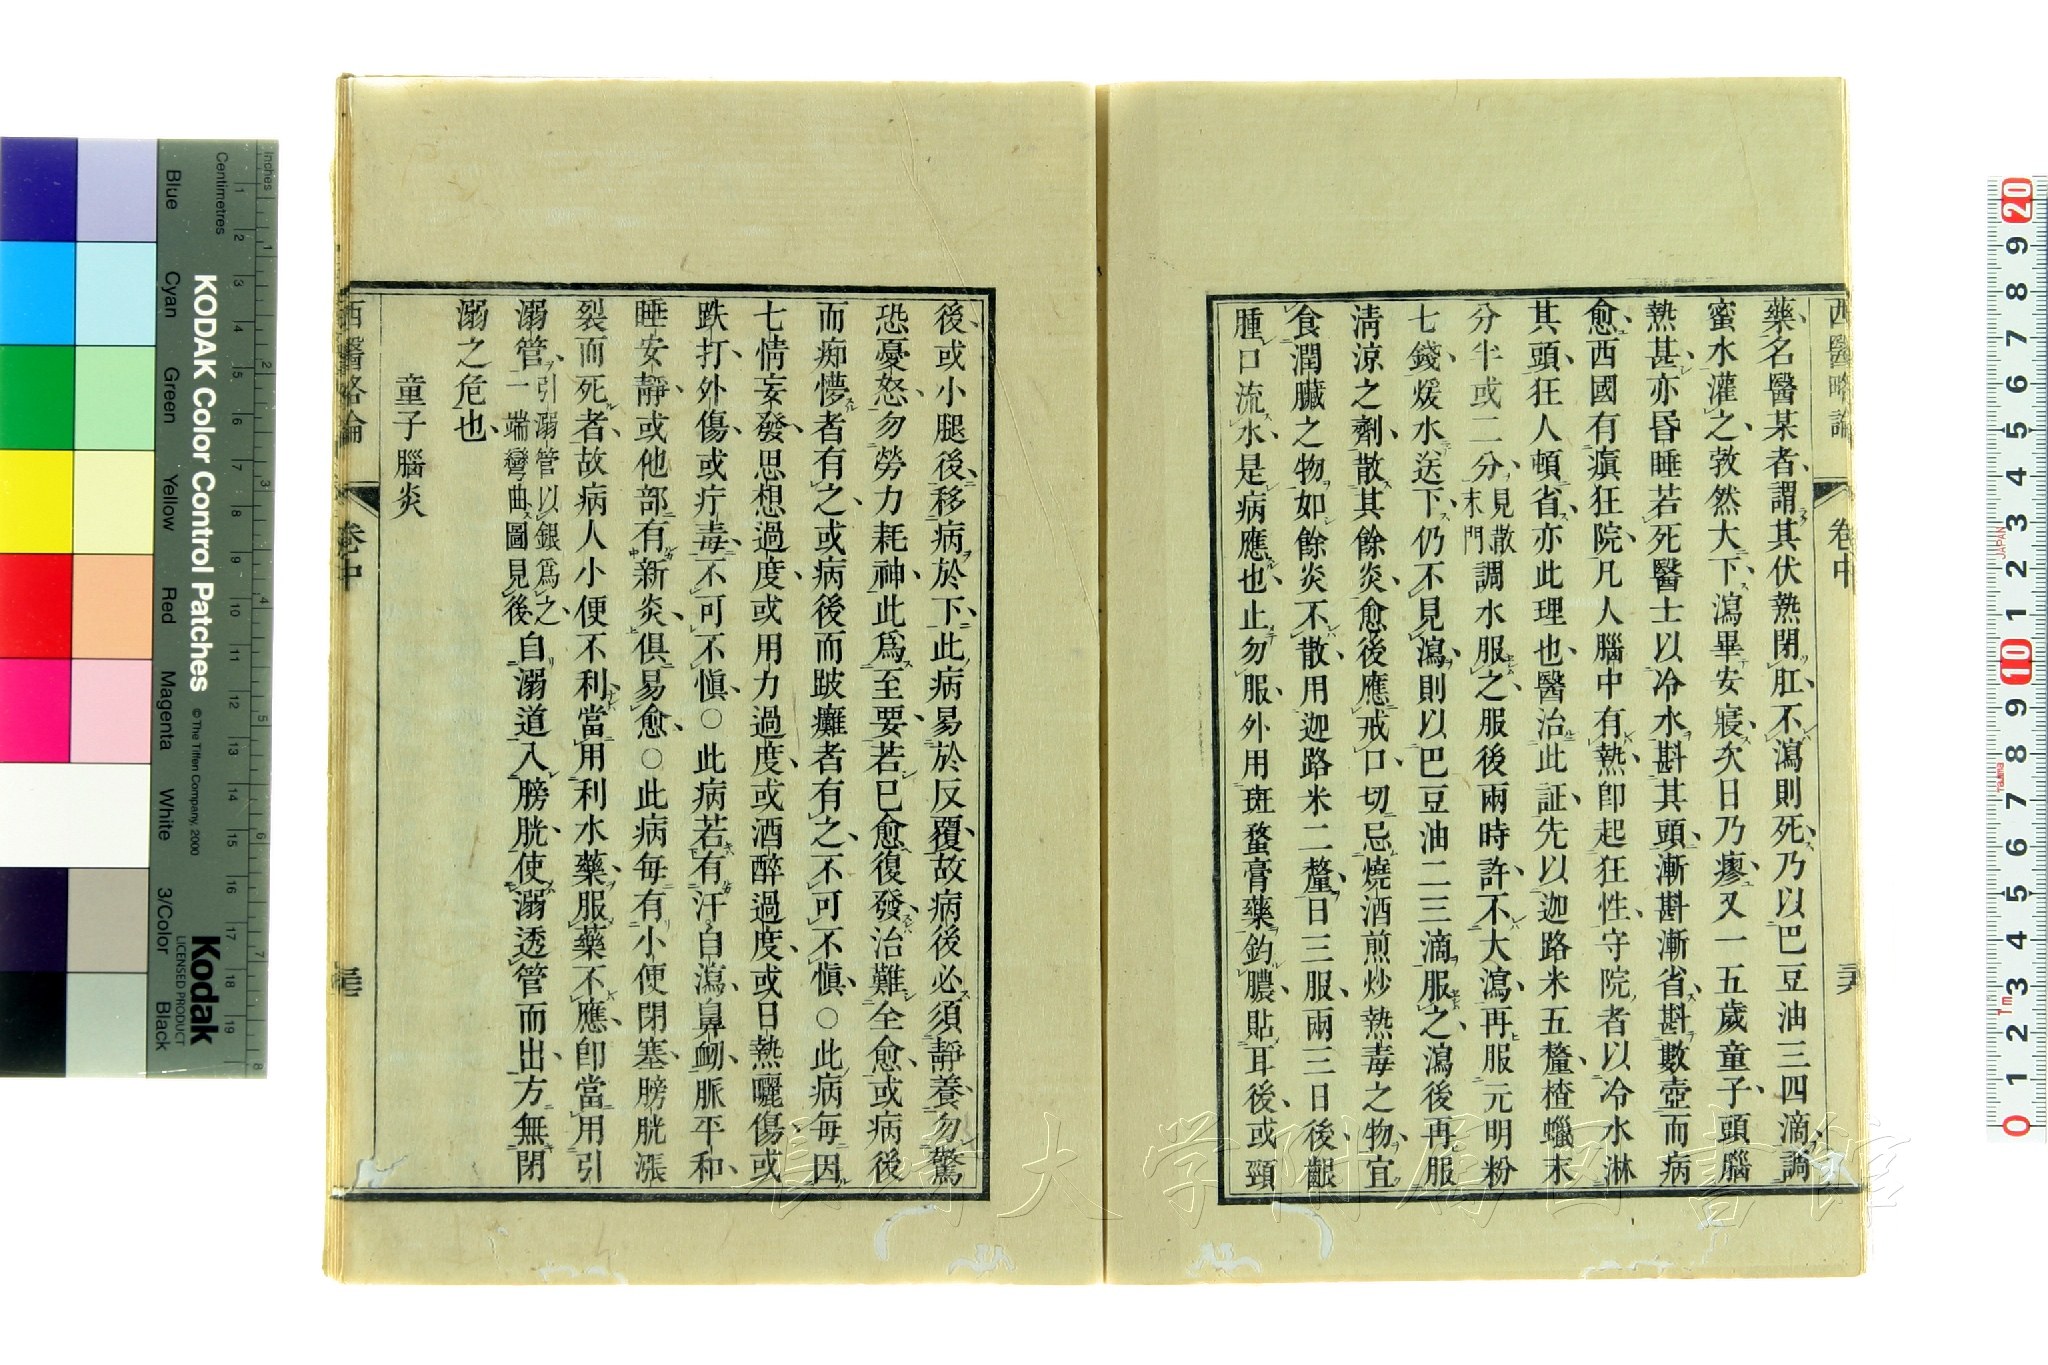 西醫略論
卷中
藥名醫某者謂其伏熱閉肛不瀉則死乃以巴豆油三四滴調
蜜水灌之敦然大下瀉畢安寢次日乃瘳又一五歲童子頭腦
熱甚亦昏睡若死醫士以冷水斟其頭漸斟漸省斟數壺而病
愈西國有瘨狂院凡人腦中有熱卽起狂性守院者以冷水淋
其頭狂人頓省亦此理也醫治此証先以迦路米五釐楂蠟末
分半或二分見散末門調水服之服後兩時許不大瀉再服元明粉
七錢煖水送下仍不見瀉則以巴豆油二三滴服之瀉後再服
淸涼之劑散其餘炎愈後應戒口切忌燒酒煎炒熱毒之物宜
食潤臟之物如餘炎不散用迦路米二釐日三服兩三日後齦
腫口流水是病應也止勿服外用斑蝥膏藥釣膿貼耳後或頸
後或小腿後移病於下此病易於反覆故病後必須靜養勿驚
恐憂怒勿勞力耗神此爲至要若已愈復發治難全愈或病後
而痴懜者有之或病後而跛癱者有之不可不愼○此病每因
七情妄發思想過度或用力過度或酒醉過度或日熱曬傷或
跌打外傷或疔毒不可不愼○此病若有汗自瀉鼻衂脈平和
睡安靜或他部有新炎俱易愈○此病每有小便閉塞膀胱漲
裂而死者故病人小便不利當用利水藥服藥不應卽當用引
溺管引溺管以銀爲之一端彎曲圖見後自溺道入膀胱使溺透管而出方無閉
溺之危也
童子腦炎
西醫略論
卷中
Centimetres
Inches
KODAK Color Control Patches
© The Tiffen Company, 2000
Kodak
LICENSED PRODUCT
Blue
Cyan
Green
Yellow
Red
Magenta
White
3/Color
Black
長崎大学附属図書館